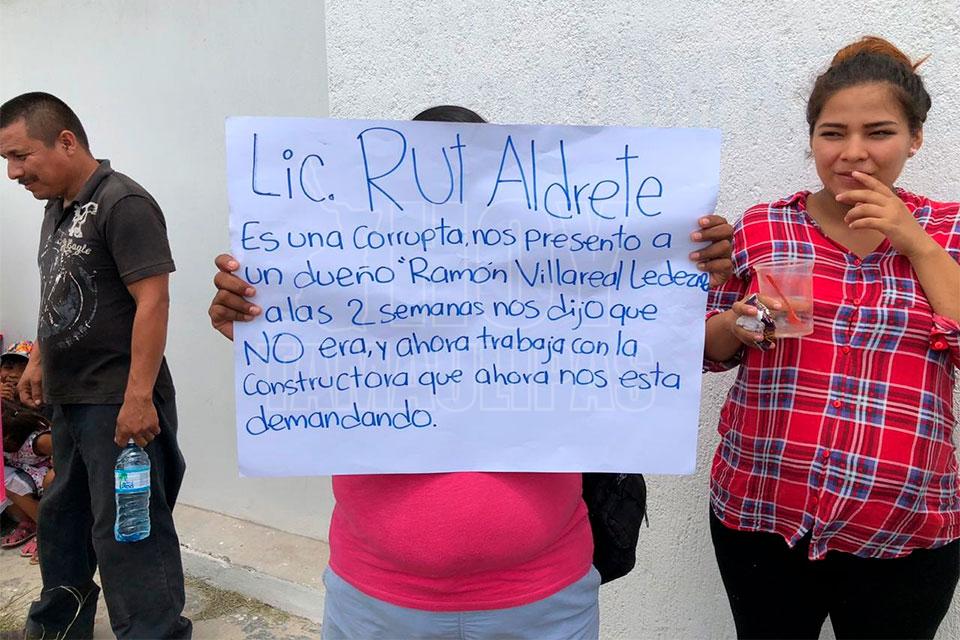 Lic. RUT Aldrete
Es una corrupta, nos presento a
un dueño "Ramón Villareal
a las 2 semanas nos dijo que
NO era, y ahora trabaja con la
constructora que ahora nos esta
demandando.
HOY
TAMAULIPAS